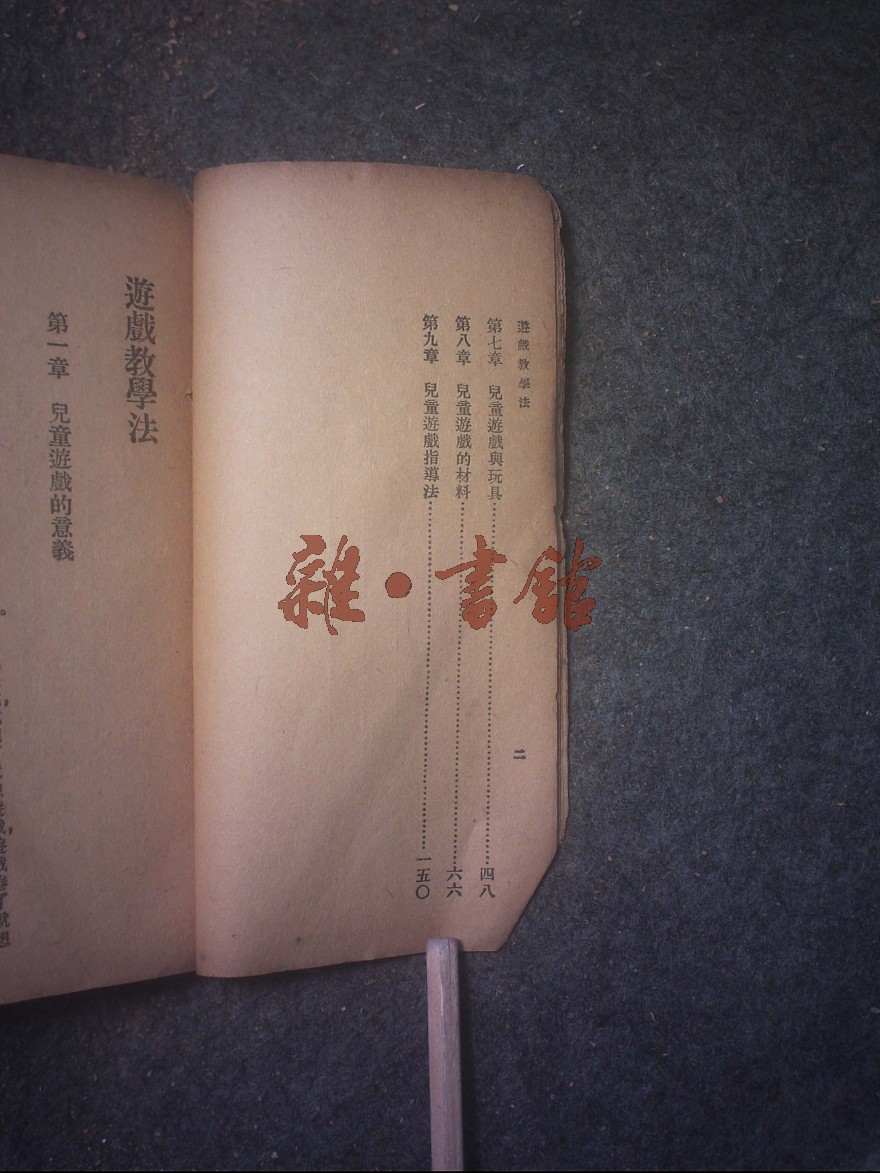 遊戲教學法
第七章 兒童遊戲與玩具……四八
第八章 兒童遊戲的材料……六六
第九章 兒童遊戲指導法……一五〇
二
遊戲教學法
第一章 兒童遊戲的意義
雜·書館